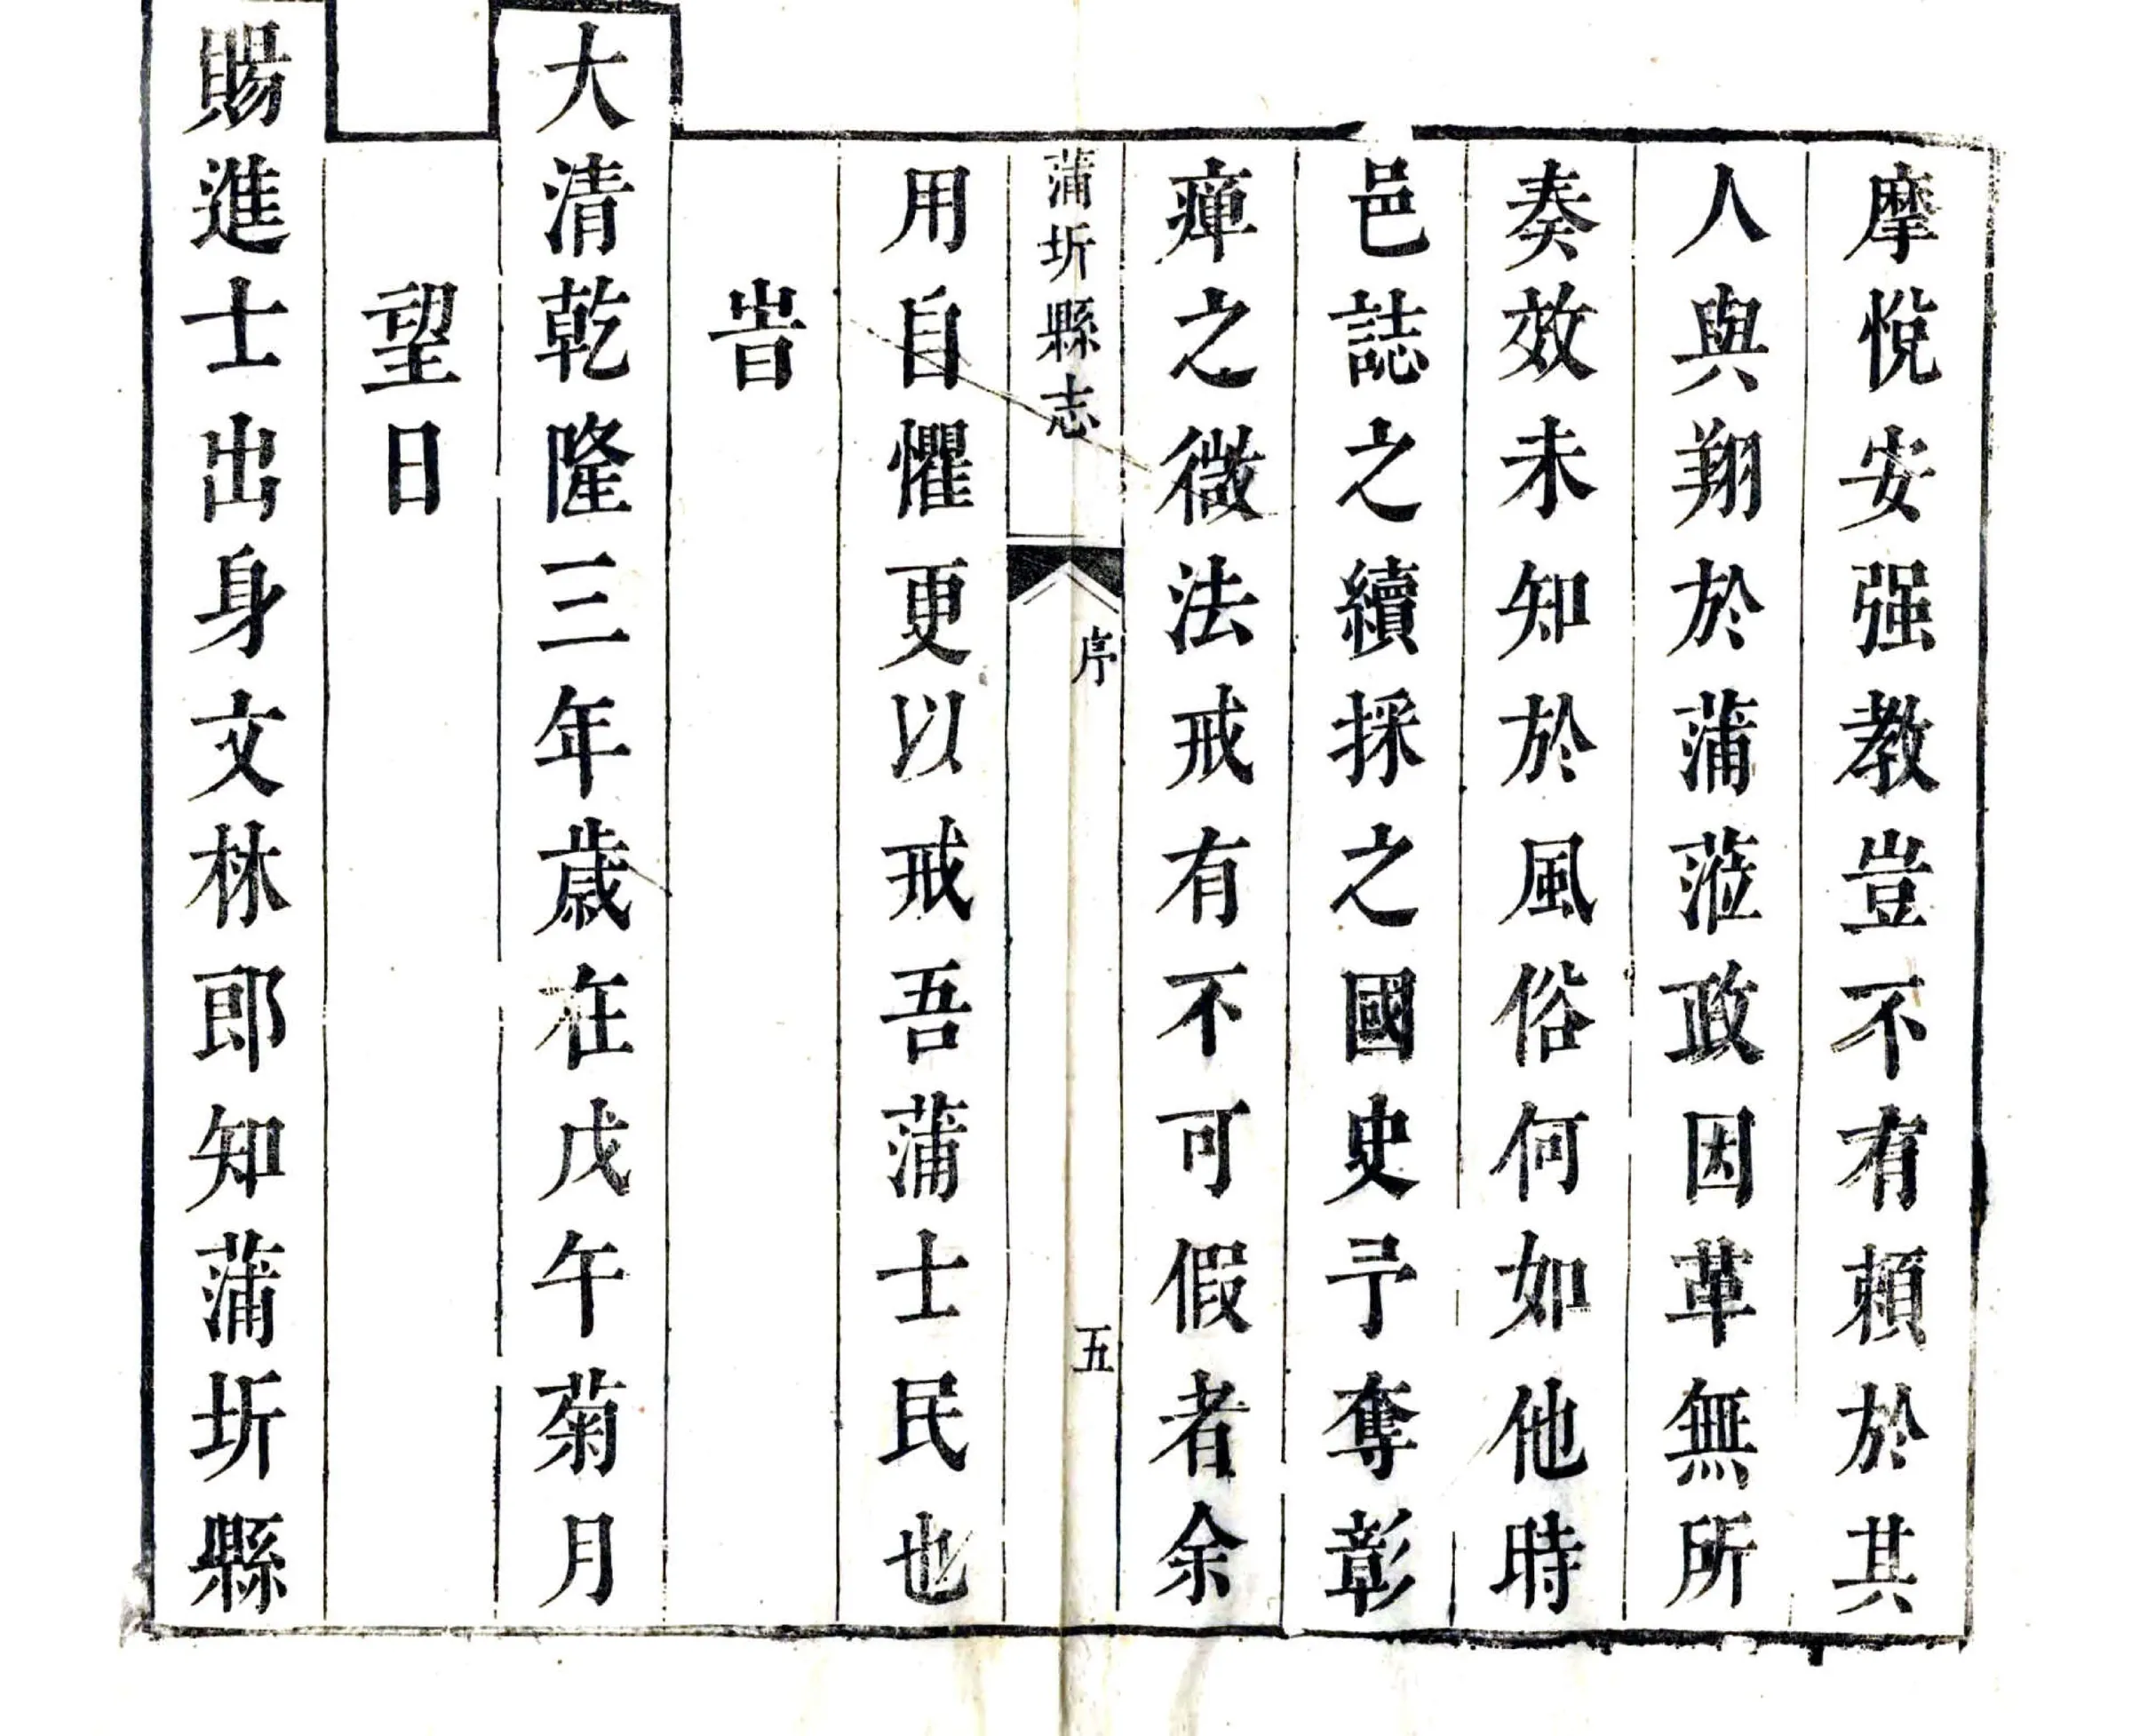 摩悅安强教豈不有賴於其
人與翔於蒲蒞政因革無所
奏效未知於風俗何如他時
邑誌之續採之國史予奪彰
癉之微法戒有不可假者余
蒲圻縣志
序
五
用自懼更以戒吾蒲士民也
旹
大清乾隆三年歲在戊午菊月
望日
賜進士出身文林郎知蒲圻縣